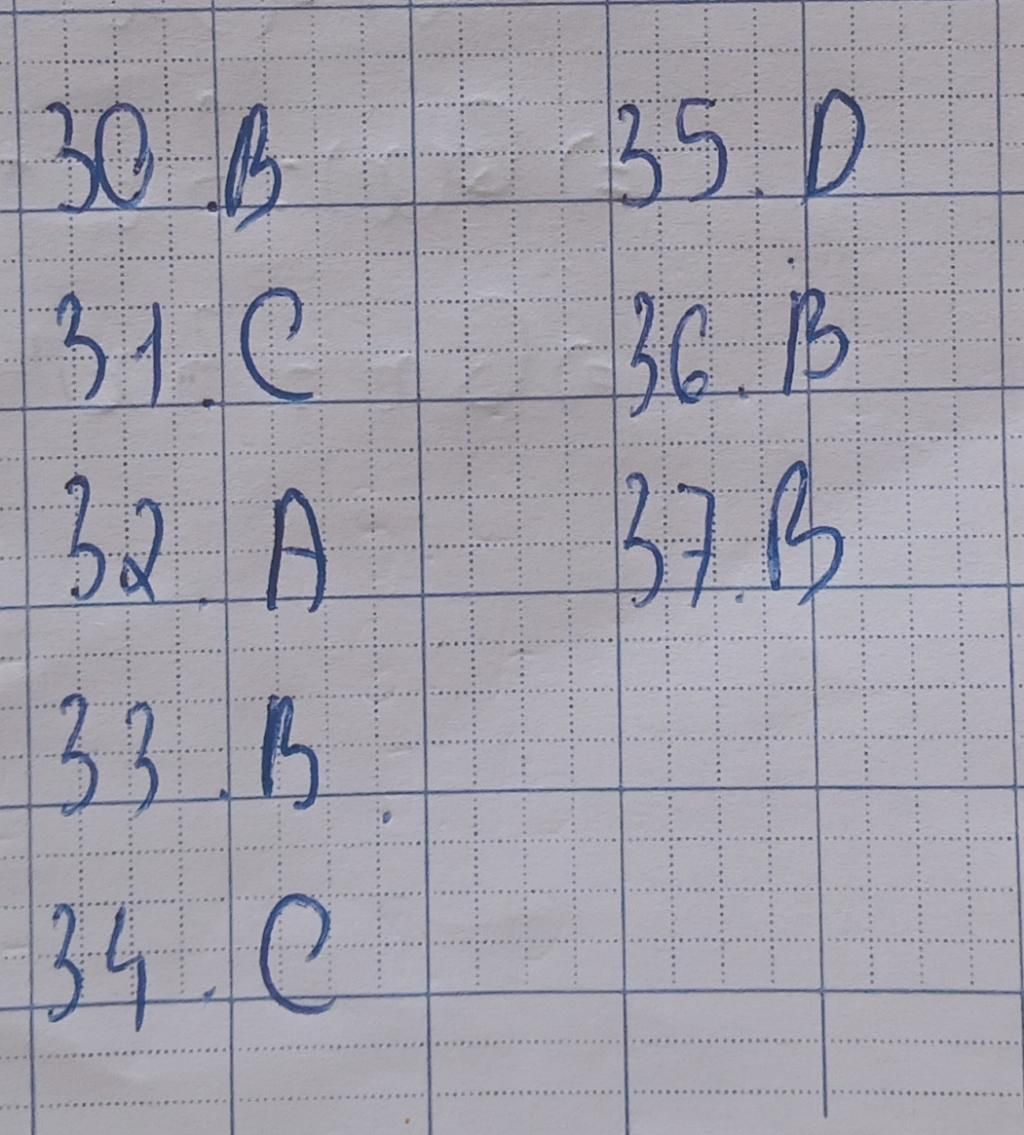 30. B
31. C
32. A
33. B
34. C
35. D
36. B
37. B